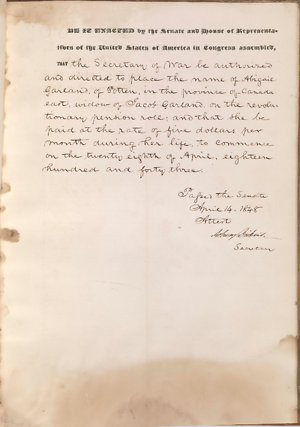 BE IT ENACTED by the Senate and House of Representa-
tives of the United States of America in Congress assembled,
THAT the Secretary of War be authorized
and directed to place the name of Abigail
Garland, of Potten, in the province of Canada
east, widow of Jacob Garland, on the revolu-
tionary pension roll, and that she be
paid at the rate of five dollars per
month during her life, to commence
on the twenty eighth of April, eighteen
hundred and forty three.
Passed the Senate
April 14 - 1848
Attest
Secretary